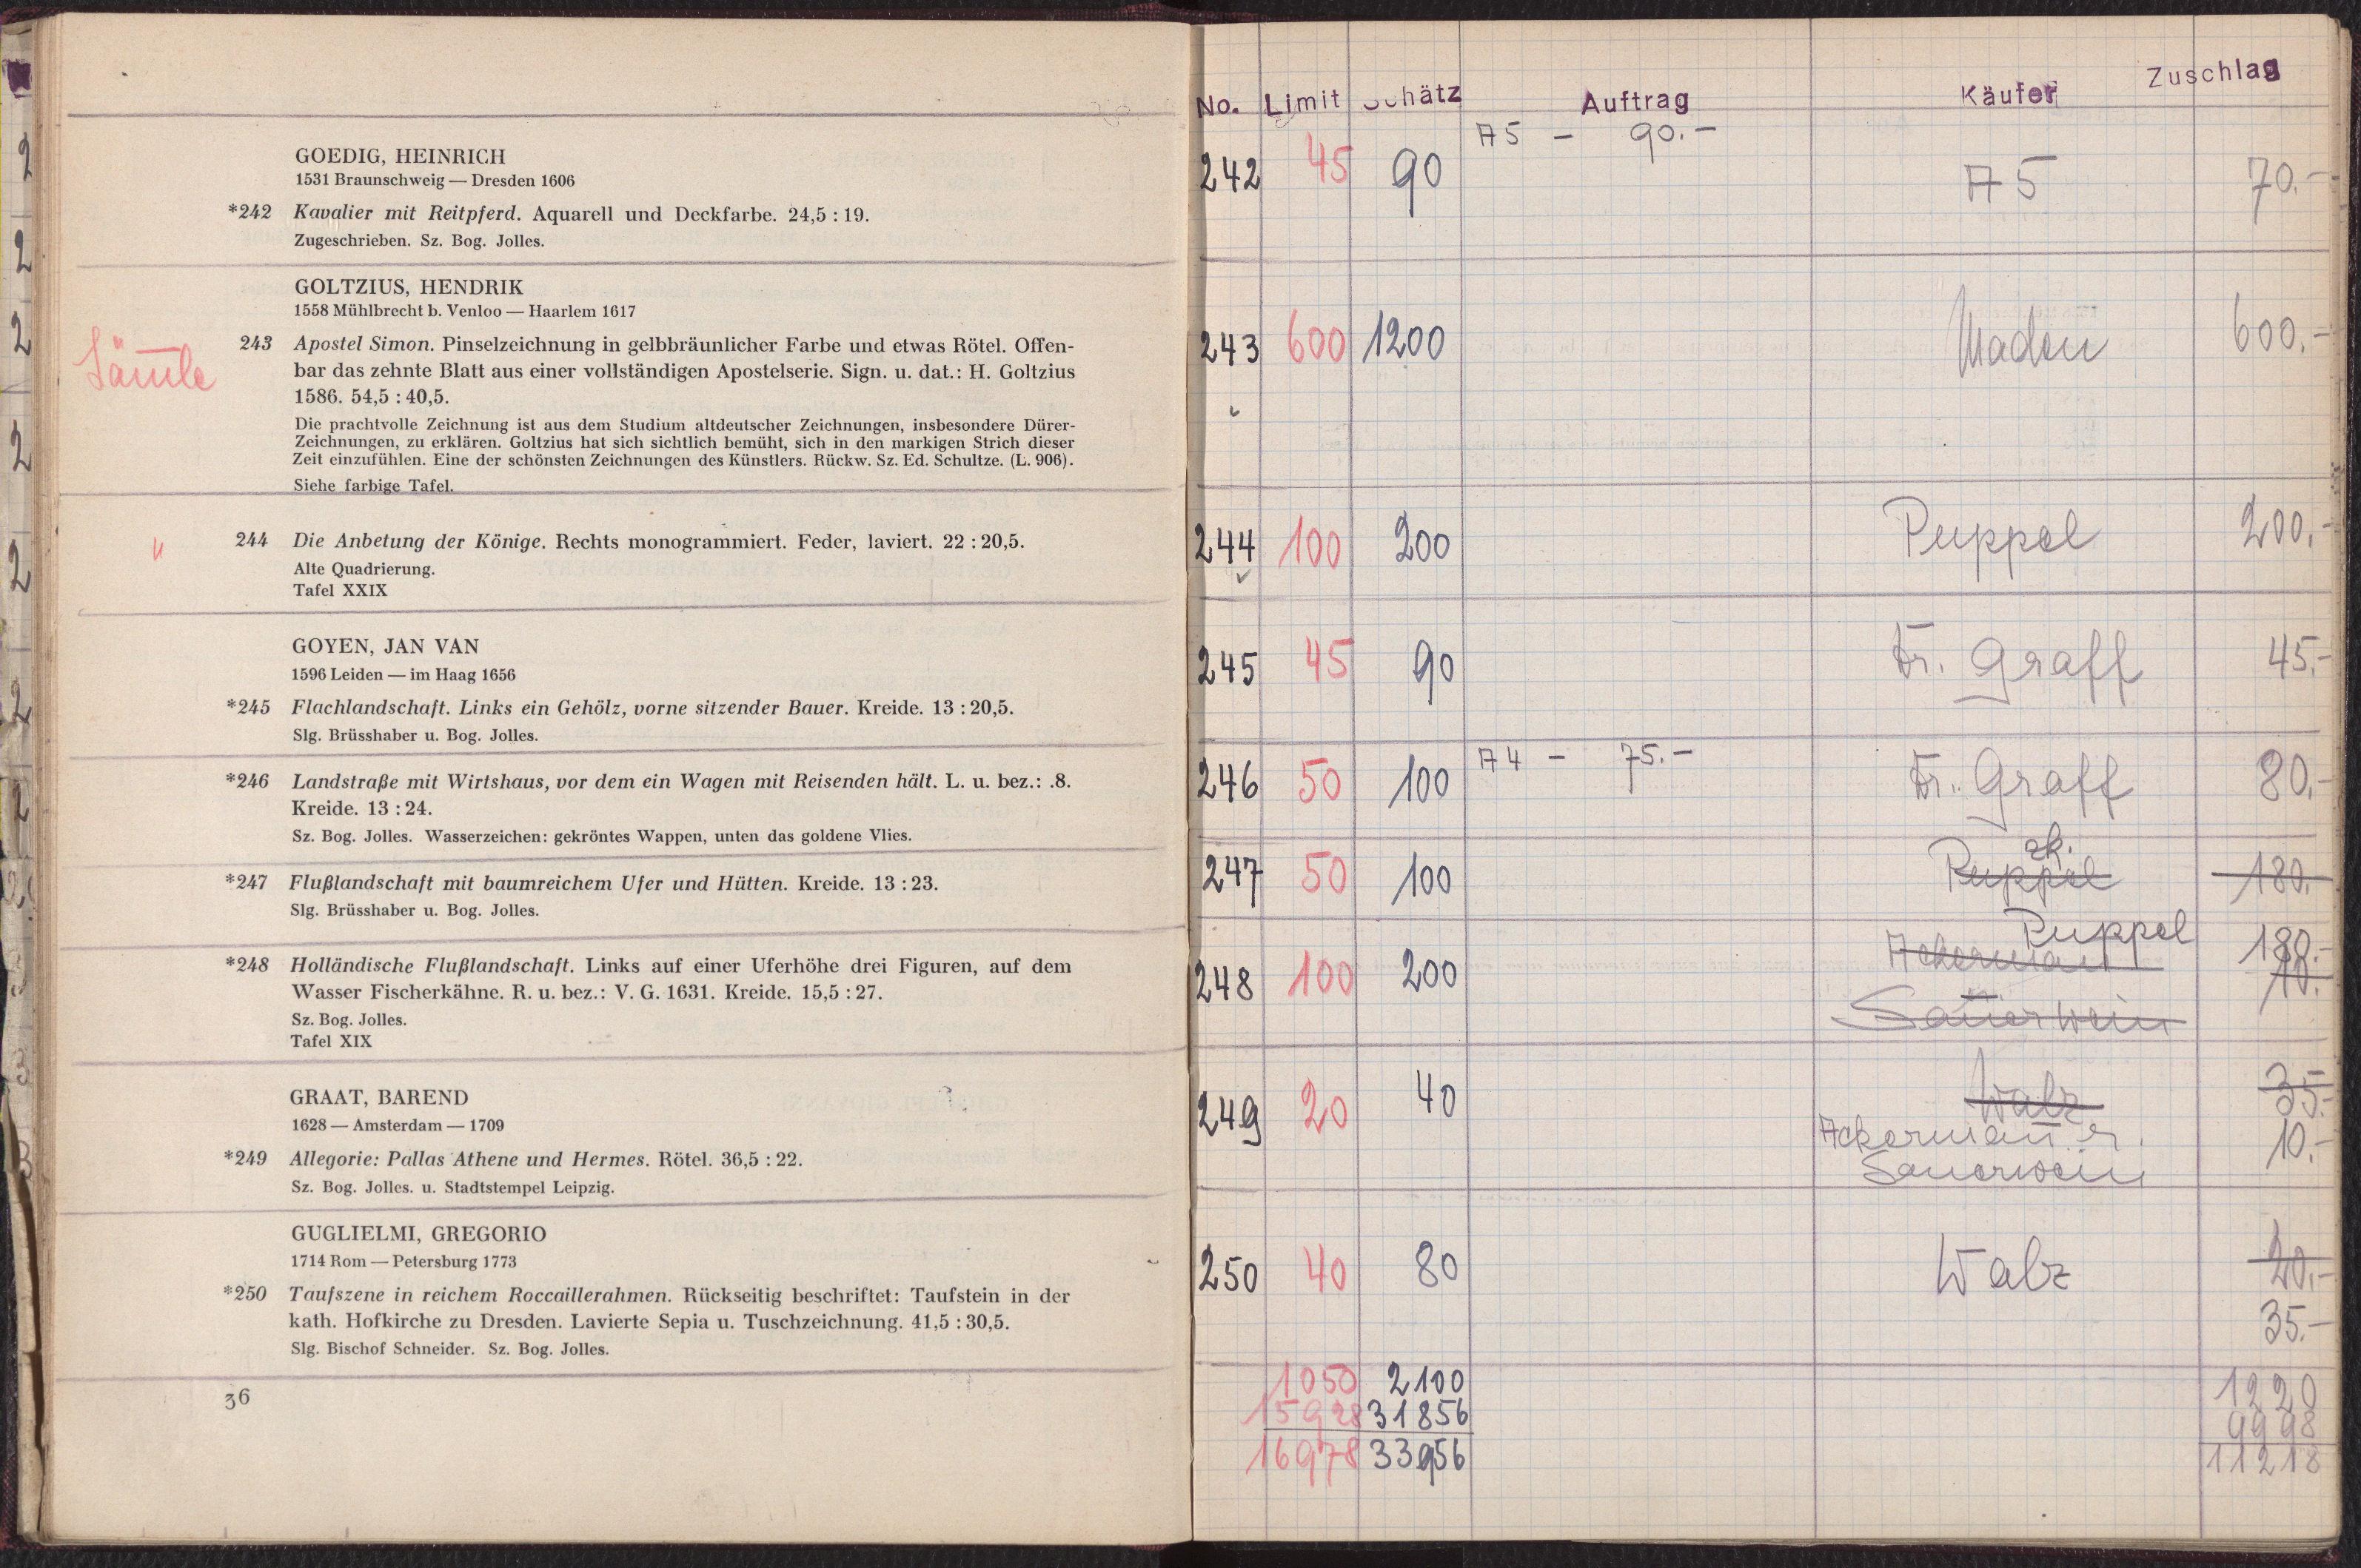 GOEDIG, HEINRICH
1531 Braunschweig — Dresden 1606
*242 Kavalier mit Reitpferd. Aquarell und Deckfarbe. 24,5 : 19.
Zugeschrieben. Sz. Bog. Jolles.
GOLTZIUS, HENDRIK
1558 Mühlbrecht b. Venloo — Haarlem 1617
243 Apostel Simon. Pinselzeichnung in gelbbräunlicher Farbe und etwas Rötel. Offen-
bar das zehnte Blatt aus einer vollständigen Apostelserie. Sign. u. dat.: H. Goltzius
1586. 54,5 : 40,5.
Die prachtvolle Zeichnung ist aus dem Studium altdeutscher Zeichnungen, insbesondere Dürer-
Zeichnungen, zu erklären. Goltzius hat sich sichtlich bemüht, sich in den markigen Strich dieser
Zeit einzufühlen. Eine der schönsten Zeichnungen des Künstlers. Rückw. Sz. Ed. Schultze. (L. 906).
Siehe farbige Tafel.
" 244 Die Anbetung der Könige. Rechts monogrammiert. Feder, laviert. 22 : 20,5.
Alte Quadrierung.
Tafel XXIX
GOYEN, JAN VAN
1596 Leiden — im Haag 1656
*245 Flachlandschaft. Links ein Gehölz, vorne sitzender Bauer. Kreide. 13 : 20,5.
Slg. Brüsshaber u. Bog. Jolles.
*246 Landstraße mit Wirtshaus, vor dem ein Wagen mit Reisenden hält. L. u. bez.: .8.
Kreide. 13 : 24.
Sz. Bog. Jolles. Wasserzeichen: gekröntes Wappen, unten das goldene Vlies.
*247 Flußlandschaft mit baumreichem Ufer und Hütten. Kreide. 13 : 23.
Slg. Brüsshaber u. Bog. Jolles.
*248 Holländische Flußlandschaft. Links auf einer Uferhöhe drei Figuren, auf dem
Wasser Fischerkähne. R. u. bez.: V. G. 1631. Kreide. 15,5 : 27.
Sz. Bog. Jolles.
Tafel XIX
GRAAT, BAREND
1628 — Amsterdam — 1709
*249 Allegorie: Pallas Athene und Hermes. Rötel. 36,5 : 22.
Sz. Bog. Jolles. u. Stadtstempel Leipzig.
GUGLIELMI, GREGORIO
1714 Rom — Petersburg 1773
*250 Taufszene in reichem Roccaillerahmen. Rückseitig beschriftet: Taufstein in der
kath. Hofkirche zu Dresden. Lavierte Sepia u. Tuschzeichnung. 41,5 : 30,5.
Slg. Bischof Schneider. Sz. Bog. Jolles.
36
No. Limit Schätz Auftrag Käufer Zuschlag
A5 - 90.-
242 45 90 A5 70.-
243 600 1200 Maden 600.-
244 100 200 Puppel 200.-
245 45 90 Dr. Graff 45.-
A4 - 75.-
246 50 100 Dr. Graff 80.-
zk.
247 50 100 Puppel 180.
Puppel 180.-
248 100 200 Ackermann 10.-
Sauerwein
249 20 40 Walz 35.-
Ackermann u. 10.-
Sauerwein
250 40 80 Walz 20.-
35.-
1050 2100 1220
15928 31856 9998
16978 33956 11218